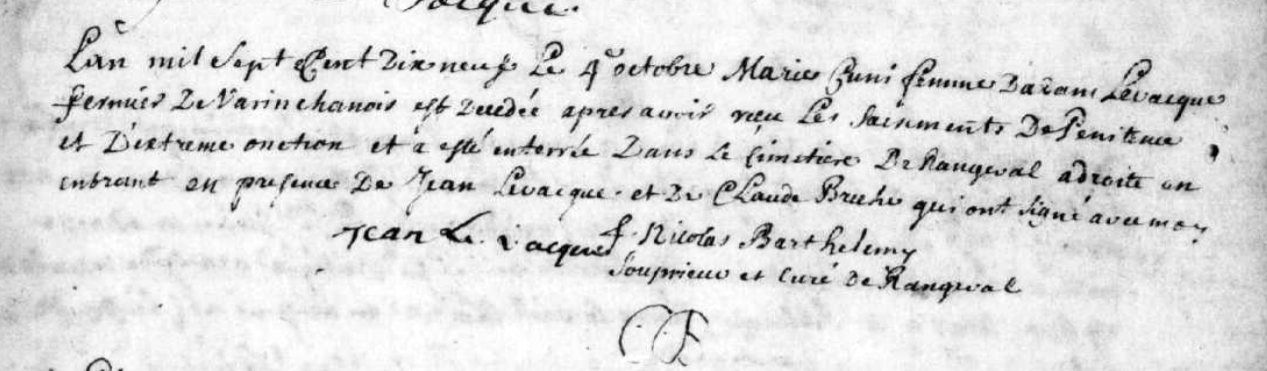 Jacque.
Lan mil Sept Cent Dix neuf Le 4e octobre Marie Cuni femme Dadam Levacque
fermier De Varinchanois est Decedée apres avoir reçu Les Sacrements De Penitence
et D'extreme onction et a esté enterrée Dans Le Cimetiere De Rangeval a droite en
entrant en presence De Jean Levacque et De Claude Bruche qui ont signé avec moy
Jean Le Vacque f. Nicolas Barthelemy
Souprieur et Curé De Rangeval